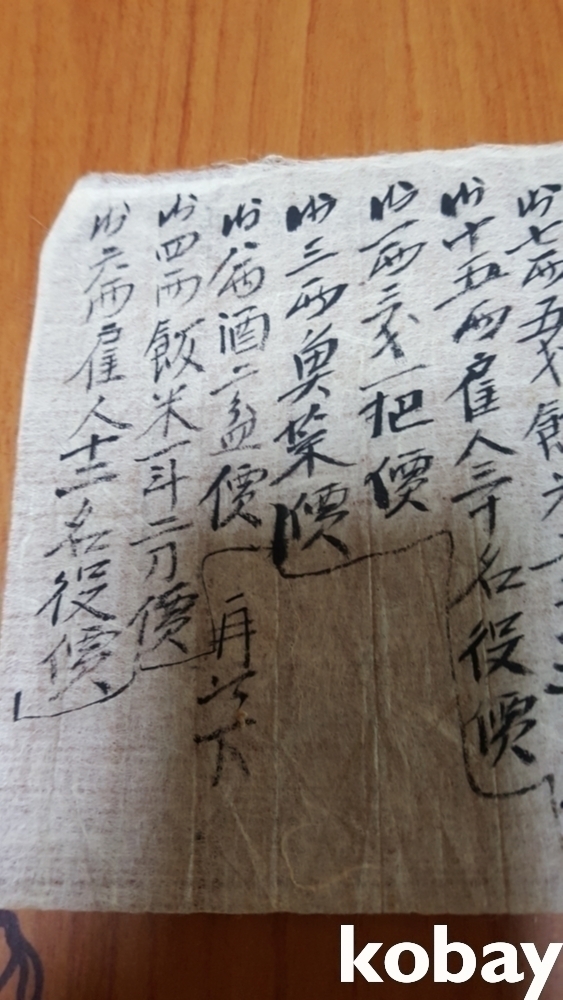 七兩五戔飯米
十五兩雇人三十名役價
一兩三戔一把價
三兩魚菜價
八兩酒二盆價
再下
四兩飯米一斗二刀價
六兩雇人十二名役價
kobay